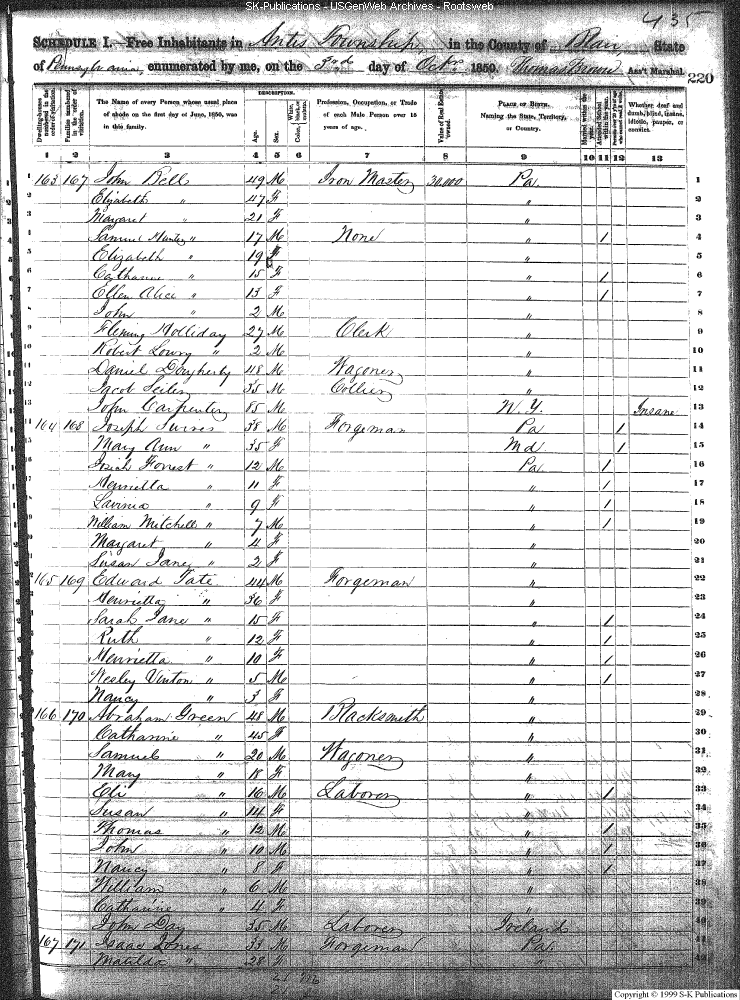 SK-Publications - USGenWeb Archives - Rootsweb
435
SCHEDULE I.—Free Inhabitants in Antis Township, in the County of Blair, State
of Pennsylvania, enumerated by me, on the 3rd day of Octr. 1850. Thomas Brown Ass't Marshal.
220
Dwelling-houses numbered in the order of visitation.
Families numbered in the order of visitation.
The Name of every Person whose usual place of abode on the first day of June, 1850, was in this family.
DESCRIPTION.
Age.
Sex.
White, black, or mulatto.
Color,
Profession, Occupation, or Trade of each Male Person over 15 years of age.
Value of Real Estate owned.
PLACE OF BIRTH. Naming the State, Territory, or Country.
Married within the year.
Attended School within the year.
Whether deaf and dumb, blind, insane, idiotic, pauper, or convict.
1 2 3 4 5 6 7 8 9 10 11 12 13
1 163 167 John Bell 49 M Iron Master 30,000 Pa 1
2 Elizabeth " 47 F " 2
3 Margaret " 21 F " 3
4 Samuel " 17 M None " / 4
5 Elizabeth " 19 F " 5
6 Catharine " 15 F " / 6
7 Ellen Alice " 13 F " / 7
8 John " 2 M " 8
9 Fleming Holliday 27 M Clerk " 9
10 Robert Lowry " 2 M " 10
11 Daniel Dougherty 48 M Wagoner " 11
12 Jacob 35 M Collier " 12
13 John Carpenter 85 M N.Y. Insane 13
14 164 168 Joseph 38 M Forgeman Pa / 14
15 Mary Ann " 35 F Md / 15
16 Josiah Forrest " 12 M Pa / 16
17 Henrietta " 11 F " / 17
18 Lavinia " 9 F " / 18
19 William Mitchell " 7 M " / 19
20 Margaret " 4 F " 20
21 Susan Jane " 2 F " 21
22 165 169 Edward Tate 44 M Forgeman " 22
23 Henrietta " 36 F " 23
24 Sarah Jane " 15 F " / 24
25 Ruth " 12 F " / 25
26 Henrietta " 10 F " / 26
27 Wesley Vinton " 5 M " / 27
28 Nancy " 3 F " 28
29 166 170 Abraham Green 48 M Blacksmith " 29
30 Catharine " 45 F " 30
31 Samuel " 20 M Wagoner " 31
32 Mary " 18 F " 32
33 Eli " 16 M Laborer " / 33
34 Susan " 14 F " 34
35 Thomas " 12 M " / 35
36 John " 10 M " / 36
37 Nancy " 8 F " / 37
38 William " 6 M " 38
39 Catharine " 4 F " 39
40 John Day 35 M Laborer Ireland 40
41 167 171 Isaac Jones 33 M Forgeman Pa 41
42 Matilda " 28 F " 42
Copyright © 1999 S-K Publications